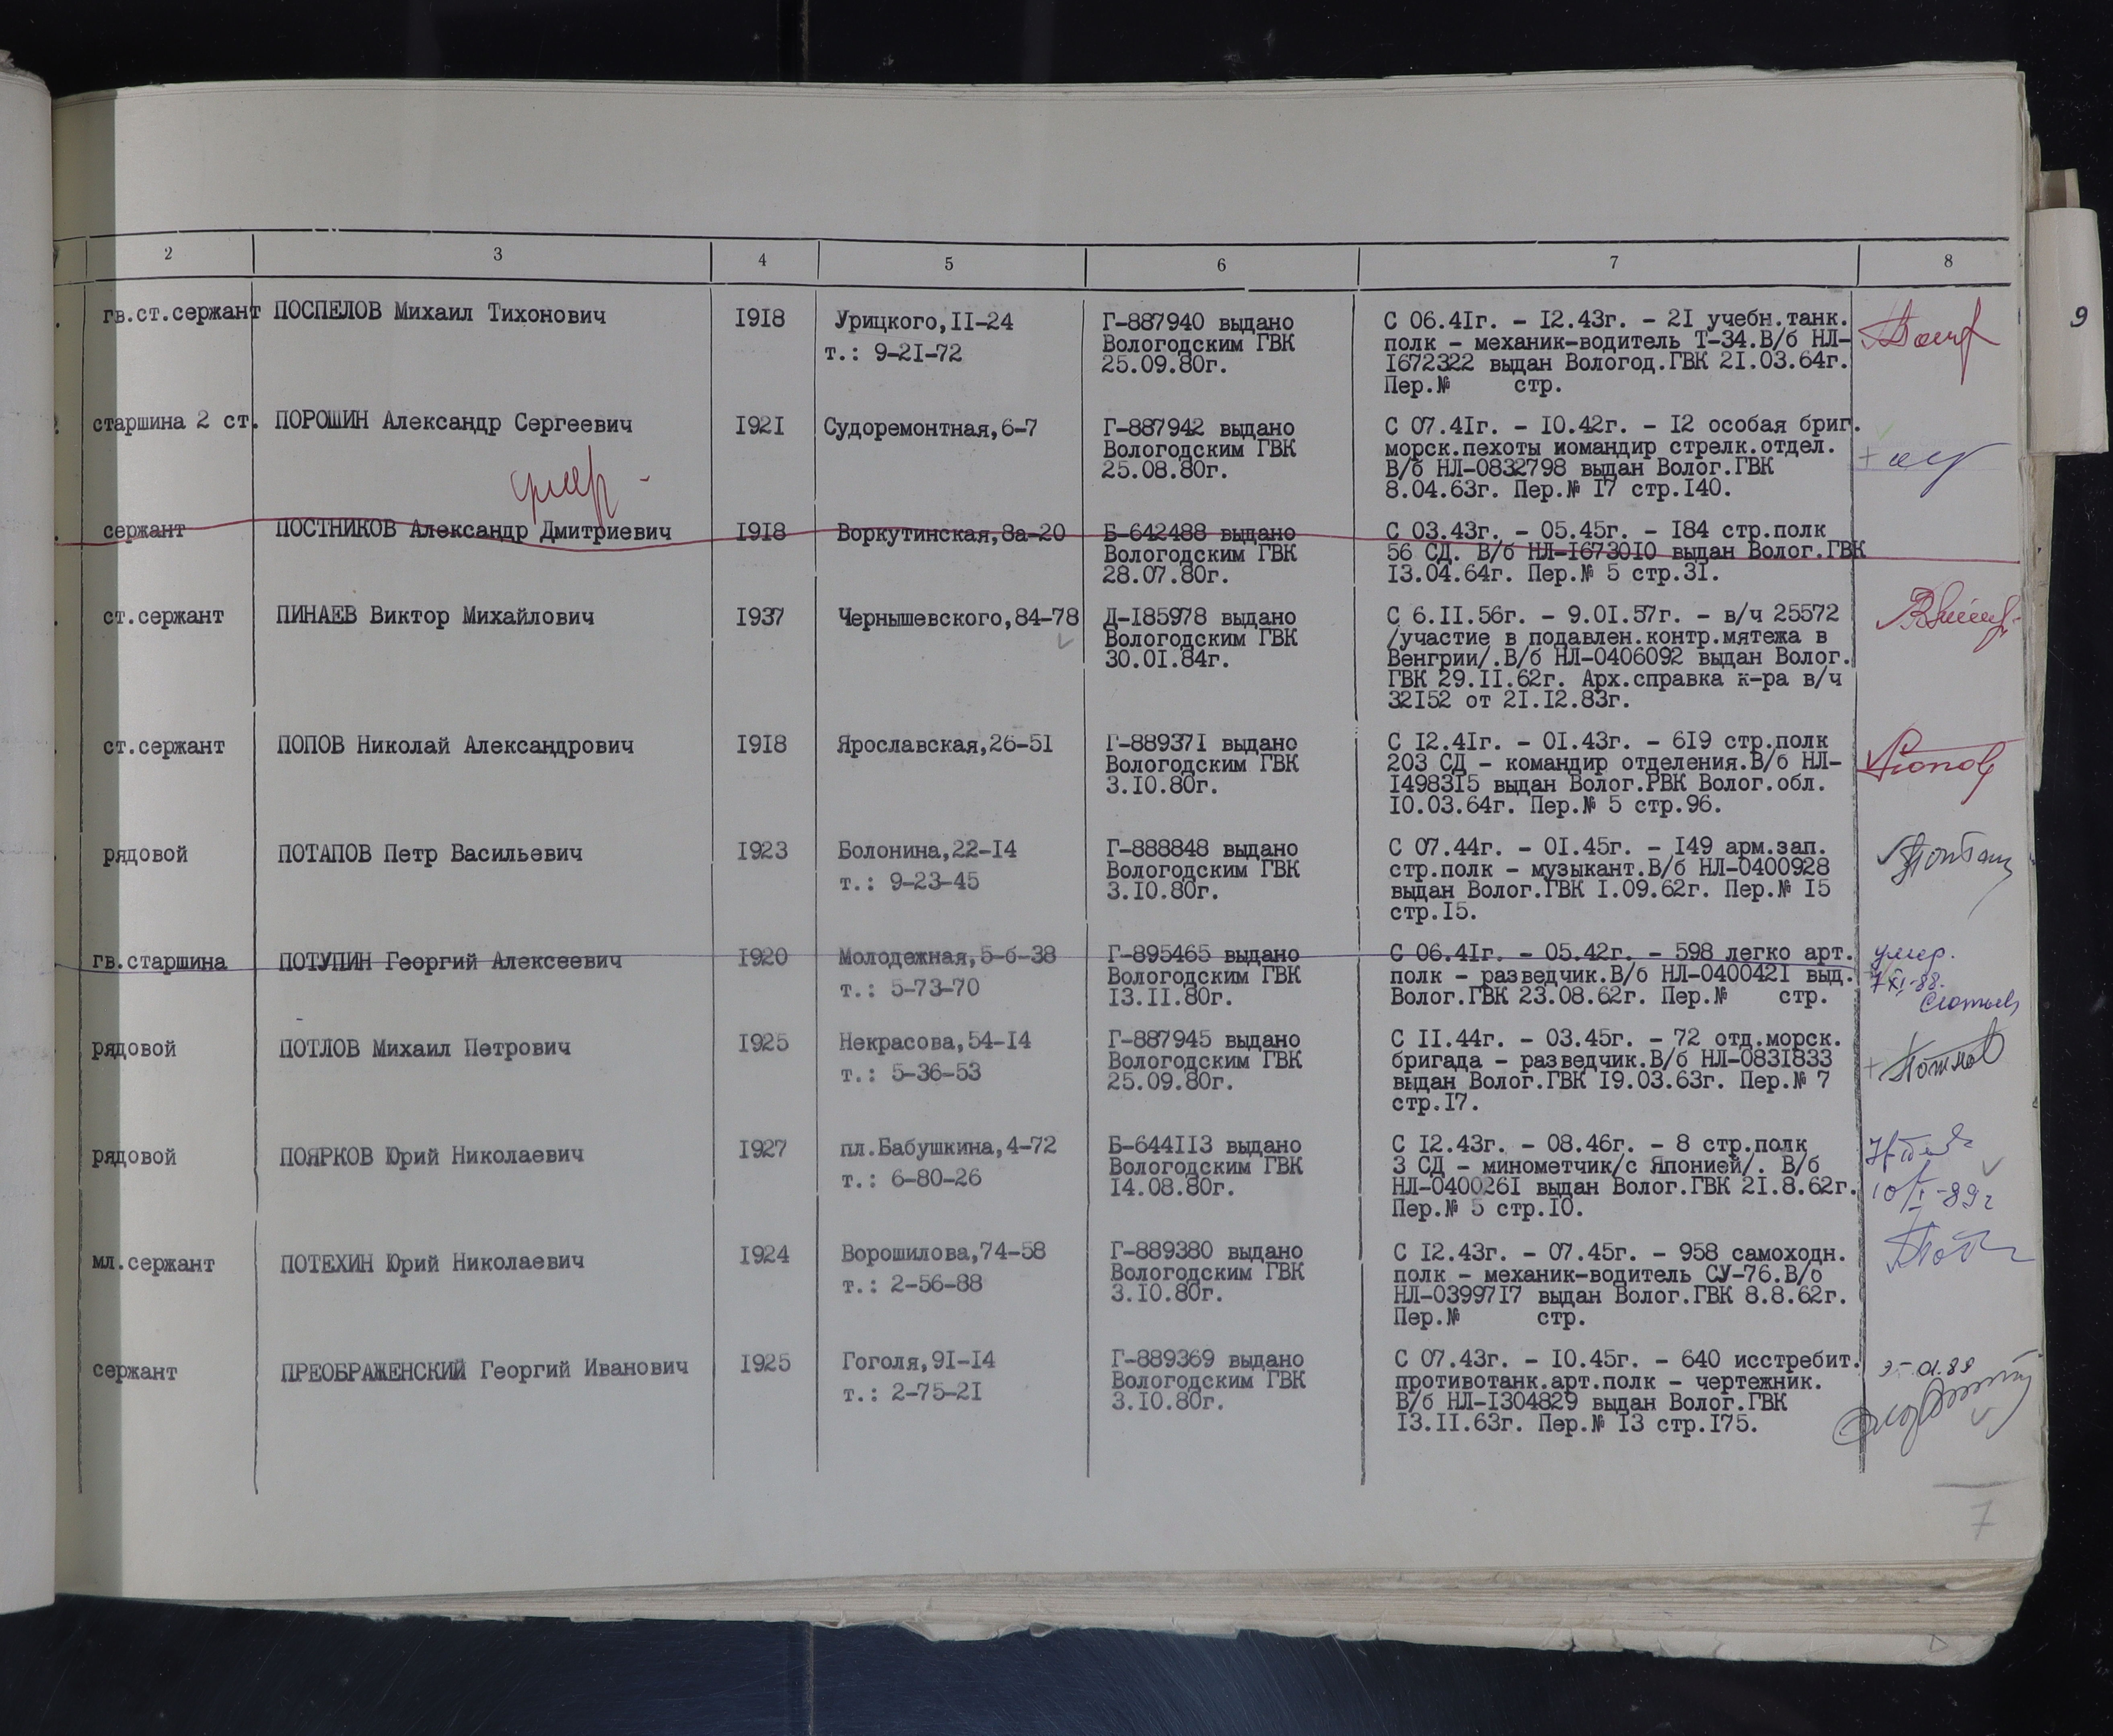 2 3 4 5 6 7 8
9
гв.ст.сержант ПОСПЕЛОВ Михаил Тихонович 1918 Урицкого,11-24 Г-887940 выдано С 06.41г. - 12.43г. - 21 учебн.танк.
т.: 9-21-72 Вологодским ГВК полк - механик-водитель Т-34.В/б НЛ-
25.09.80г. 1672322 выдан Вологод.ГВК 21.03.64г.
Пер.№ стр.
старшина 2 ст. ПОРОШИН Александр Сергеевич 1921 Судоремонтная,6-7 Г-887942 выдано С 07.41г. - 10.42г. - 12 особая бриг.
Вологодским ГВК морск.пехоты иомандир стрелк.отдел.
25.08.80г. В/б НЛ-0832798 выдан Волог.ГВК
8.04.63г. Пер.№ 17 стр.140.
умер -
сержант ПОСТНИКОВ Александр Дмитриевич 1918 Воркутинская,8а-20 Б-642488 выдано С 03.43г. - 05.45г. - 184 стр.полк
Вологодским ГВК 56 СД. В/б НЛ-1673010 выдан Волог.ГВК
28.07.80г. 13.04.64г. Пер.№ 5 стр.31.
ст.сержант ПИНАЕВ Виктор Михайлович 1937 Чернышевского,84-78 Д-185978 выдано С 6.11.56г. - 9.01.57г. - в/ч 25572
Вологодским ГВК /участие в подавлен.контр.мятежа в
30.01.84г. Венгрии/.В/б НЛ-0406092 выдан Волог.
ГВК 29.11.62г. Арх.справка к-ра в/ч
32152 от 21.12.83г.
ст.сержант ПОПОВ Николай Александрович 1918 Ярославская,26-51 Г-889371 выдано С 12.41г. - 01.43г. - 619 стр.полк
Вологодским ГВК 203 СД - командир отделения.В/б НЛ-
3.10.80г. 1498315 выдан Волог.РВК Волог.обл.
10.03.64г. Пер.№ 5 стр.96.
рядовой ПОТАПОВ Петр Васильевич 1923 Болонина,22-14 Г-888848 выдано С 07.44г. - 01.45г. - 149 арм.зап.
т.: 9-23-45 Вологодским ГВК стр.полк - музыкант.В/б НЛ-0400928
3.10.80г. выдан Волог.ГВК 1.09.62г. Пер.№ 15
стр.15.
гв.старшина ПОТУПИН Георгий Алексеевич 1920 Молодежная,5-б-38 Г-895465 выдано С 06.41г. - 05.42г. - 598 легко арт. умер.
т.: 5-73-70 Вологодским ГВК полк - разведчик.В/б НЛ-0400421 выд. 7 XI-88.
13.11.80г. Волог.ГВК 23.08.62г. Пер.№ стр.
рядовой ПОТЛОВ Михаил Петрович 1925 Некрасова,54-14 Г-887945 выдано С 11.44г. - 03.45г. - 72 отд.морск.
т.: 5-36-53 Вологодским ГВК бригада - разведчик.В/б НЛ-0831833
25.09.80г. выдан Волог.ГВК 19.03.63г. Пер.№ 7
стр.17.
рядовой ПОЯРКОВ Юрий Николаевич 1927 пл.Бабушкина,4-72 Б-644113 выдано С 12.43г. - 08.46г. - 8 стр.полк
т.: 6-80-26 Вологодским ГВК 3 СД - минометчик/с Японией/. В/б
14.08.80г. НЛ-0400261 выдан Волог.ГВК 21.8.62г. 10/I-89г
Пер.№ 5 стр.10.
мл.сержант ПОТЕХИН Юрий Николаевич 1924 Ворошилова,74-58 Г-889380 выдано С 12.43г. - 07.45г. - 958 самоходн.
т.: 2-56-88 Вологодским ГВК полк - механик-водитель СУ-76.В/б
3.10.80г. НЛ-0399717 выдан Волог.ГВК 8.8.62г.
Пер.№ стр.
сержант ПРЕОБРАЖЕНСКИЙ Георгий Иванович 1925 Гоголя,91-14 Г-889369 выдано С 07.43г. - 10.45г. - 640 исстребит.
т.: 2-75-21 Вологодским ГВК противотанк.арт.полк - чертежник.
3.10.80г. В/б НЛ-1304829 выдан Волог.ГВК
13.11.63г. Пер.№ 13 стр.175.
7